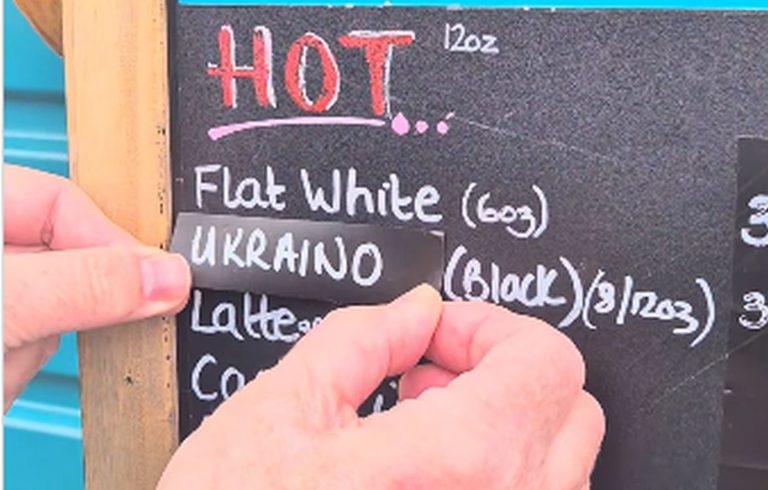 HOT 12oz
Flat White (6oz)
UKRAINO (Black) (8/12oz)
Latte
3
3